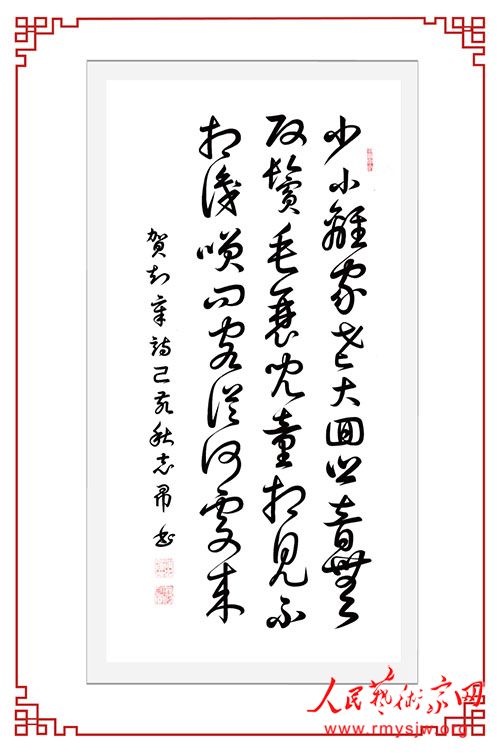 少小離家老大回鄉音無
改鬢毛衰兒童相見不
相識咲問客從何處來
賀知章詩己亥秋志昂書
人民藝術家网
www.rmysjw.org